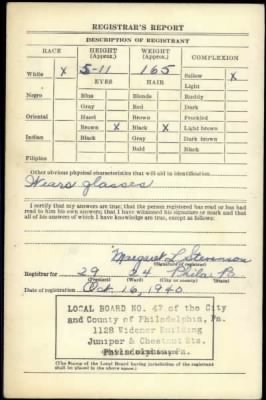 REGISTRAR'S REPORT
DESCRIPTION OF REGISTRANT
RACE HEIGHT (Approx.) WEIGHT (Approx.) COMPLEXION
White X 5-11 165 Sallow X
EYES HAIR Light
Negro Blue Blonde Ruddy
Gray Red Dark
Oriental Hazel Brown Freckled
Brown X Black X Light brown
Indian Black Gray Dark brown
Bald Black
Filipino
Other obvious physical characteristics that will aid in identification
Wears glasses
I certify that my answers are true; that the person registered has read or has had
read to him his own answers; that I have witnessed his signature or mark and that
all of his answers of which I have knowledge are true, except as follows:
Margaret L Stevenson
(Signature of registrar)
Registrar for 29 24 Phila. Pa
(Precinct) (Ward) (City or county) (State)
Date of registration Oct. 16, 1940
LOCAL BOARD NO. 47 of the City
and County of Philadelphia, Pa.
1128 Widener Building
Juniper & Chestnut Sts.
Philadelphia, Pa.
(The Stamp of the Local Board having jurisdiction of the registrant
shall be placed in the above space.)